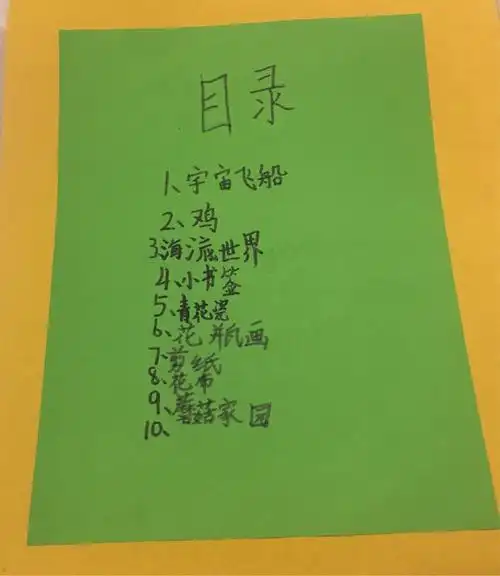 目录
1、宇宙飞船
2、鸡
3、海底世界
4、小书签
5、青花瓷
6、花瓶画
7、剪纸
8、花布
9、蘑菇家园
10、